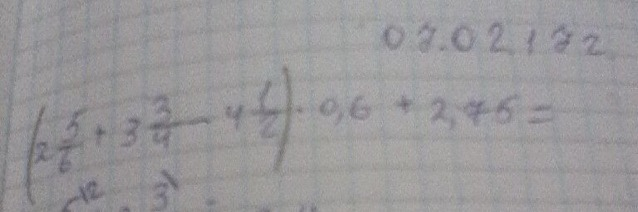 07.02.172
(2 5/6 + 3 3/4 - 4 1/2) · 0,6 + 2,75 =